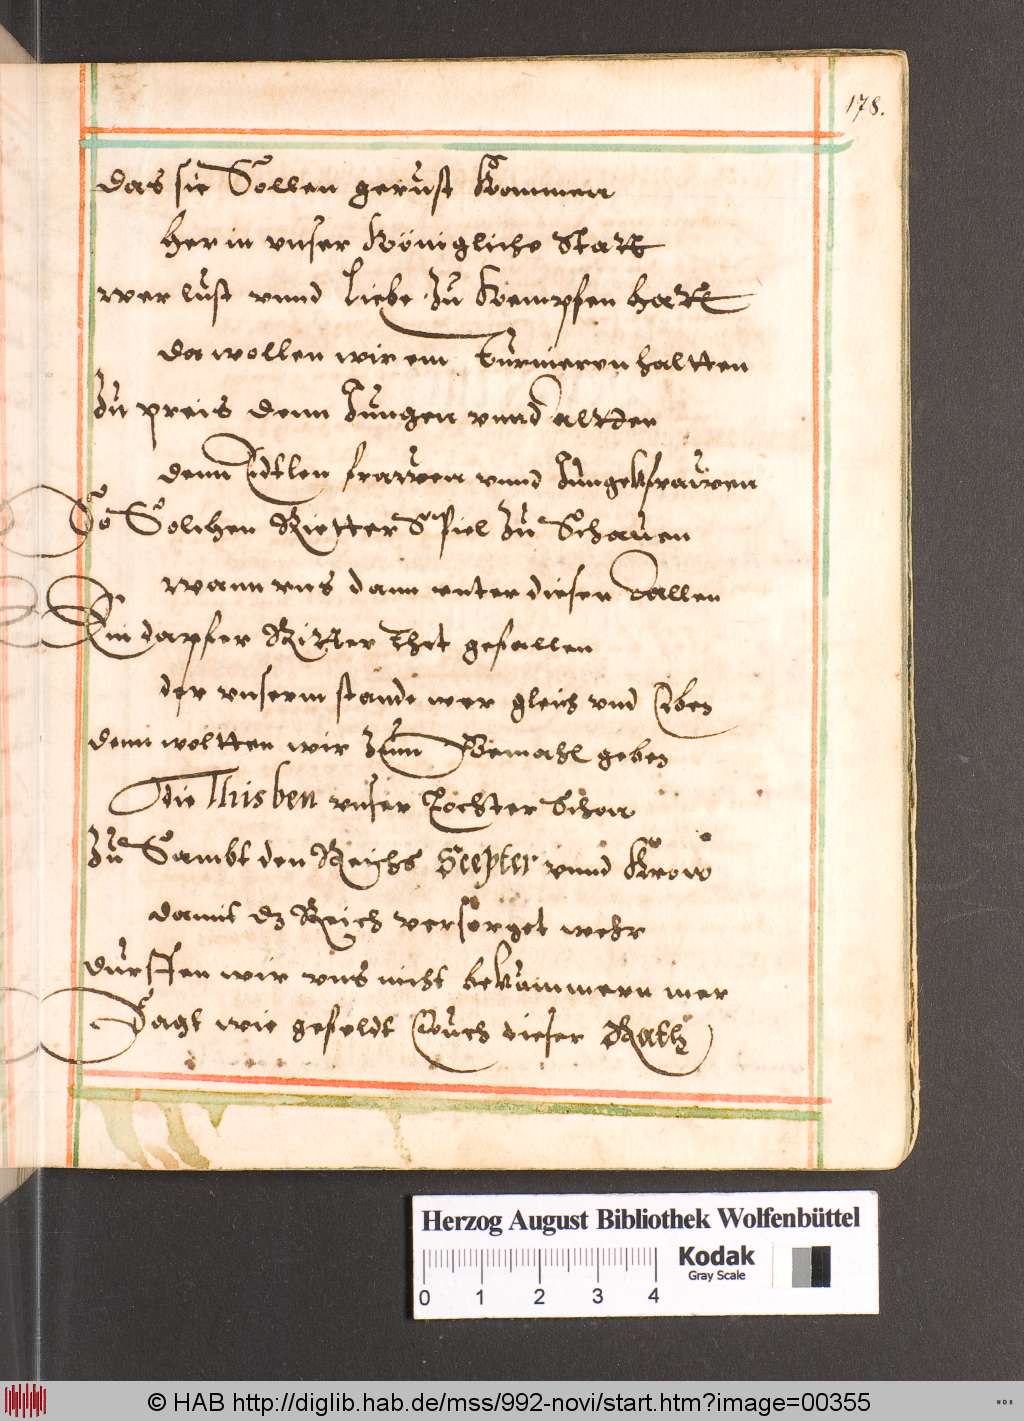 178.
das sie Sollen gerust Kommen
her in vnser Königliche Statt
wer lust vnnd Liebe zu Kempfen hatt
da wollen wir ein Turnieren haltten
Zu preis denn Jungen vnnd altden
denn Edtlen frawen vnnd Jungekfrawen
So Solchen Rietter Spiel Zu Schauen
wann vns dann vnter diesen Allen
Ein dapfer Ritter Thet gefallen
der vnserm stande wer gleich vnd Eben
denn woltten wir Zum Gemahl geben
die Thisben vnser Tochter Schon
Zu Sambt den Reichs Scepter vnnd Kron
damit dz Reich versorget wehr
durffen wir vns nicht bekummern mer
Sagt wie gefeldt Euch dieser Rath
Herzog August Bibliothek Wolfenbüttel
Kodak
Gray Scale
0 1 2 3 4
© HAB http://diglib.hab.de/mss/992-novi/start.htm?image=00355